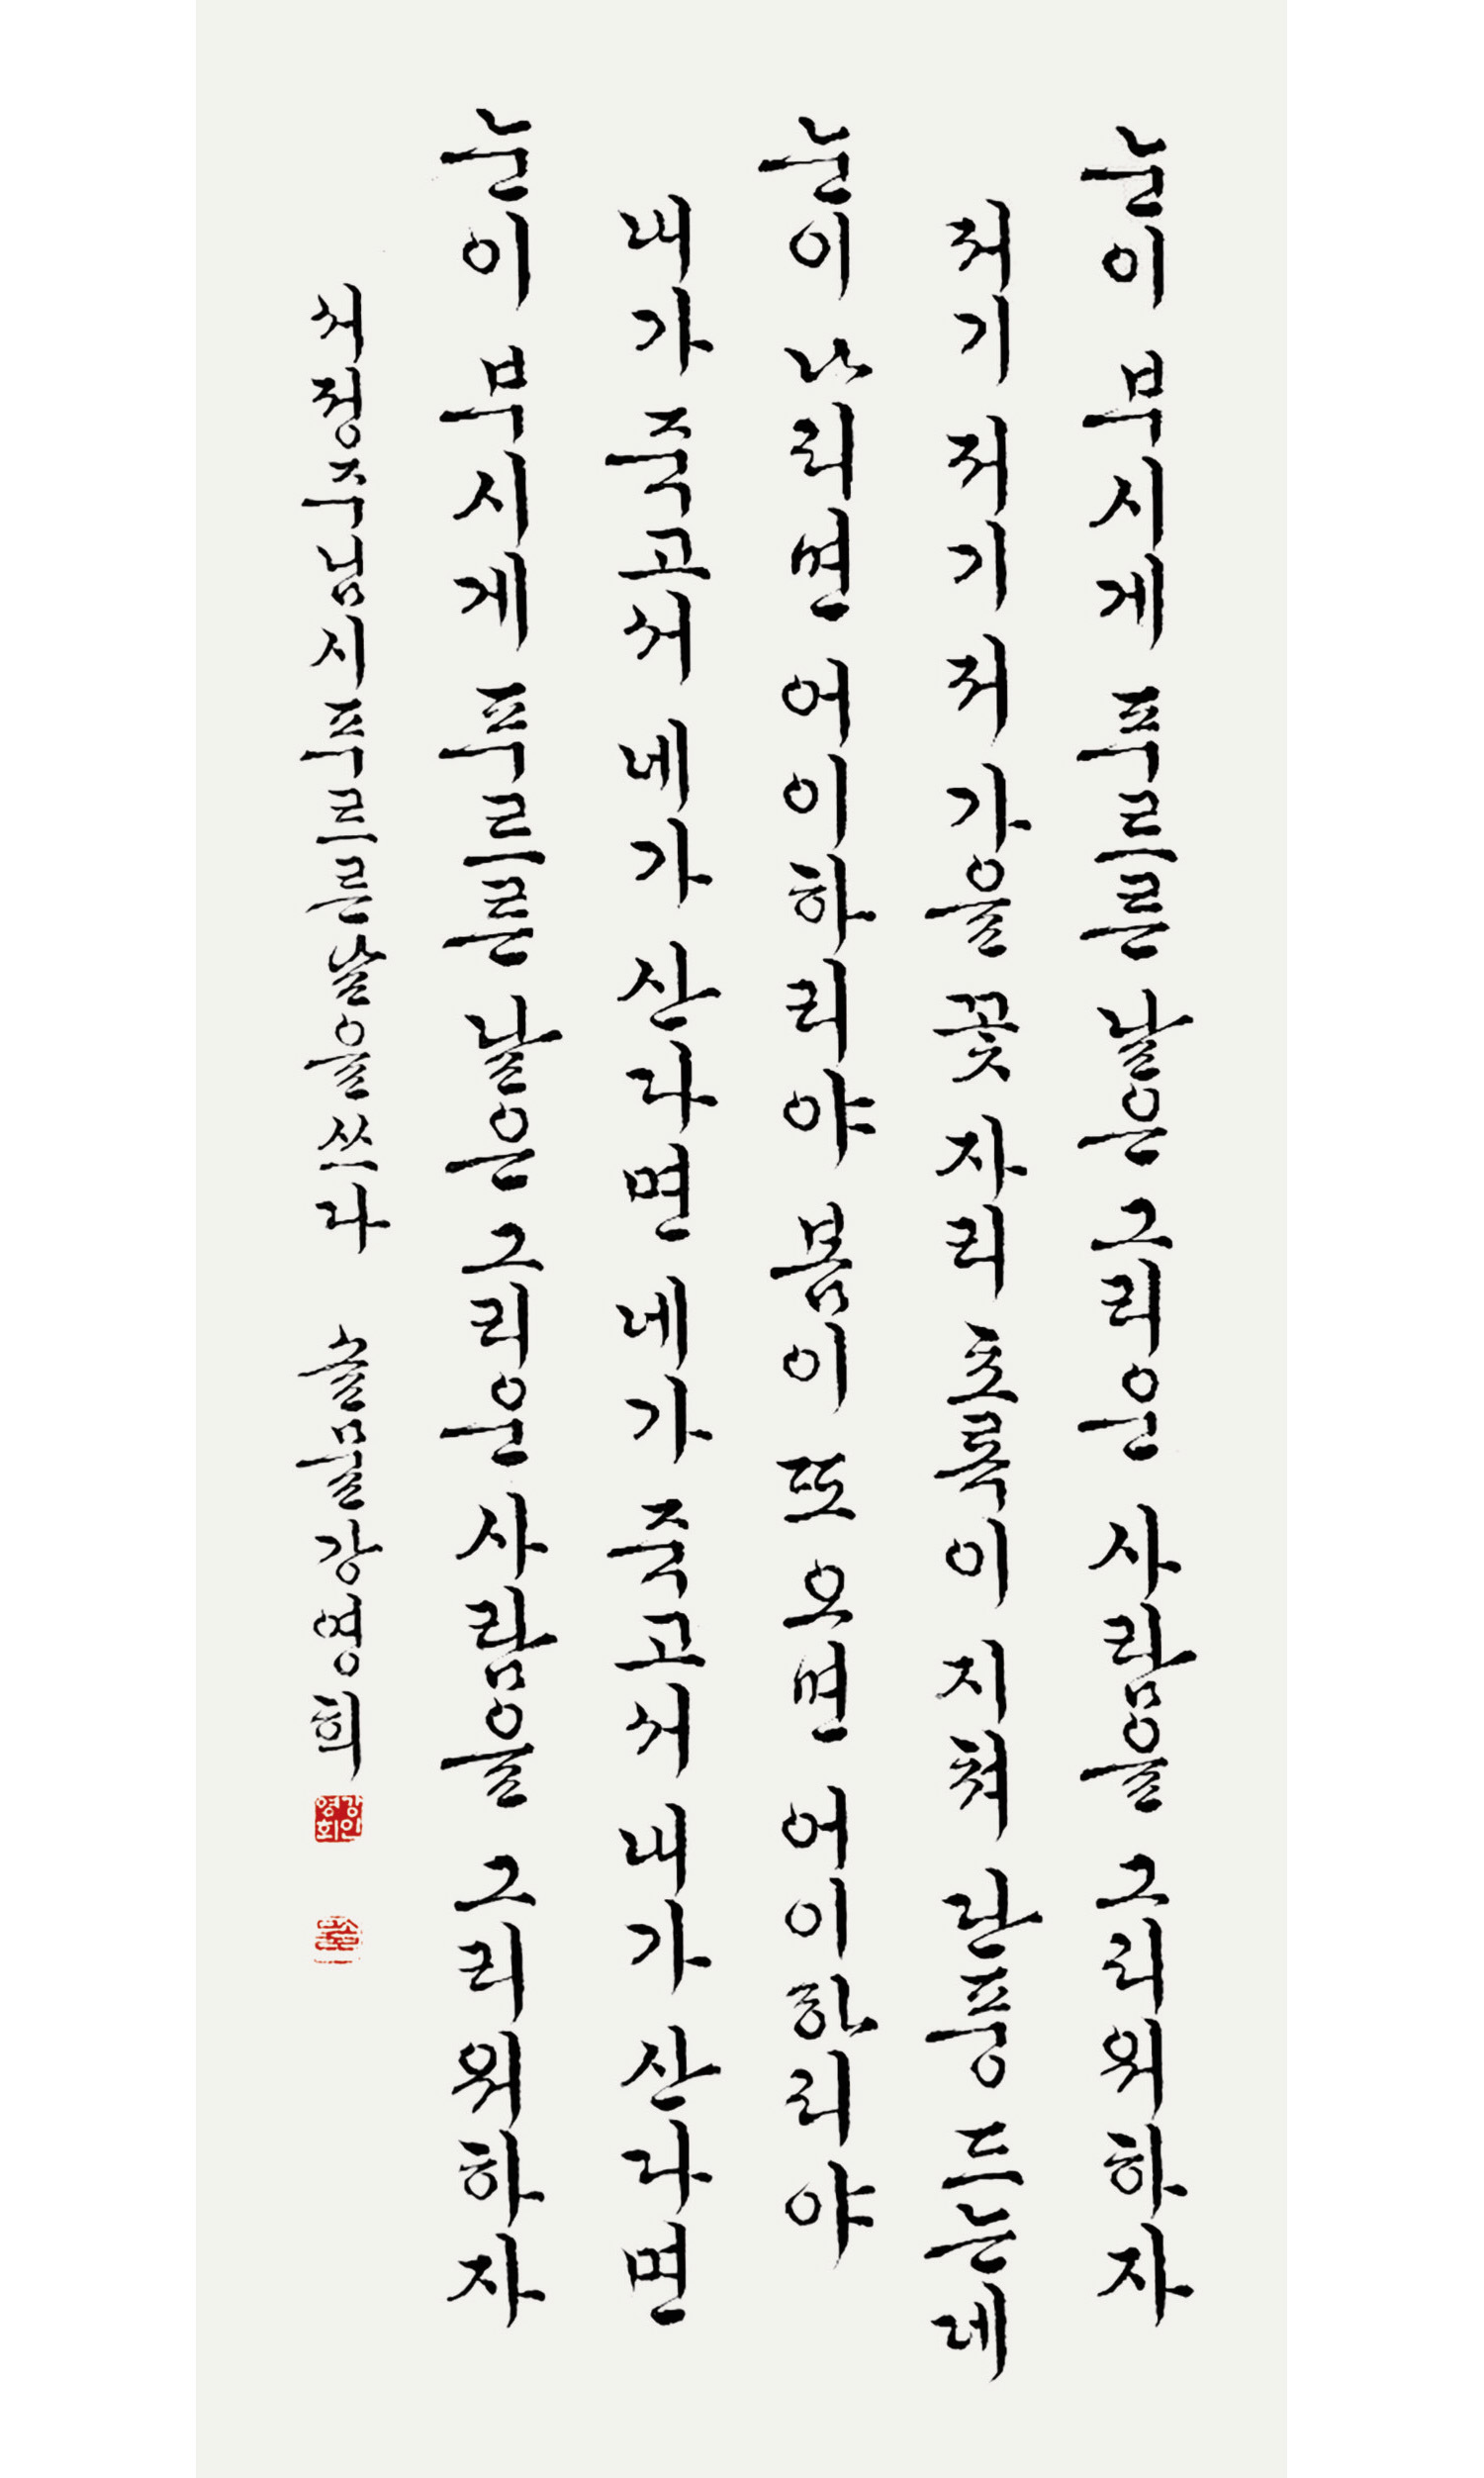 눈이 부시게 푸르른 날은 그리운 사람을 그리워하자
저기 저기 저 가을 꽃 자리 초록이 지쳐 단풍 드는데
눈이 나리면 어이하리야 봄이 또 오면 어이하리야
내가 죽고서 네가 산다면 네가 죽고서 내가 산다면
눈이 부시게 푸르른 날은 그리운 사람을 그리워하자
서정주님시푸르른날을쓰다 강영희
강인영희